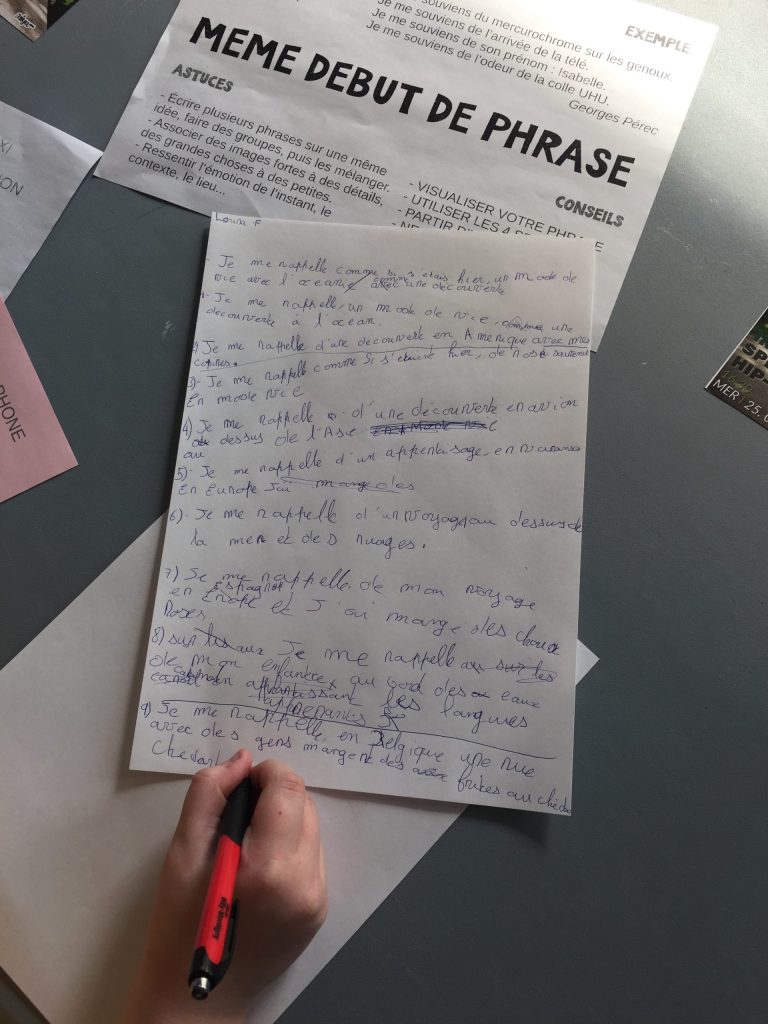 souviens du mercurochrome sur les genoux.
Je me souviens de l'arrivée de la télé.
Je me souviens de son prénom : Isabelle.
Je me souviens de l'odeur de la colle UHU.
Georges Pérec
EXEMPLE
MEME DEBUT DE PHRASE
ASTUCES
- Écrire plusieurs phrases sur une même
idée, faire des groupes, puis les mélanger.
- Associer des images fortes à des détails,
des grandes choses à des petites.
- Ressentir l'émotion de l'instant, le
contexte, le lieu...
CONSEILS
- VISUALISER VOTRE PHRASE
- UTILISER LES
- PARTIR
PHONE
MER. 25.
Louna F
- Je me rappelle comme si s'étais hier, un mode de
vie avec l'océan comme avec une découverte
Je me rappelle, un mode de vie, comme une
découverte à l'océan.
2) Je me rappelle d'une découverte en Amérique avec mes
copines.
3) Je me rappelle comme si s'étaient hier, de nos
En mode vie
4) Je me rappelle d'une découverte en avion
au dessus de l'Asie
au
5) - Je me rappelle d'un apprentisage, en vacances
En Europe J'ai mangé des
6) - Je me rappelle d'un voyage au dessus de
la mer et des nuages.
7) Je me rappelle de mon voyage
en Espagne
Europe et J'ai mangé des choux
Roses
8) Je me rappelle
de mon enfance, au bord des eaux
apprenant les langues
9) Je me rappelle, en Belgique une rue
avec des gens mangent des frites au chedar
Chedar